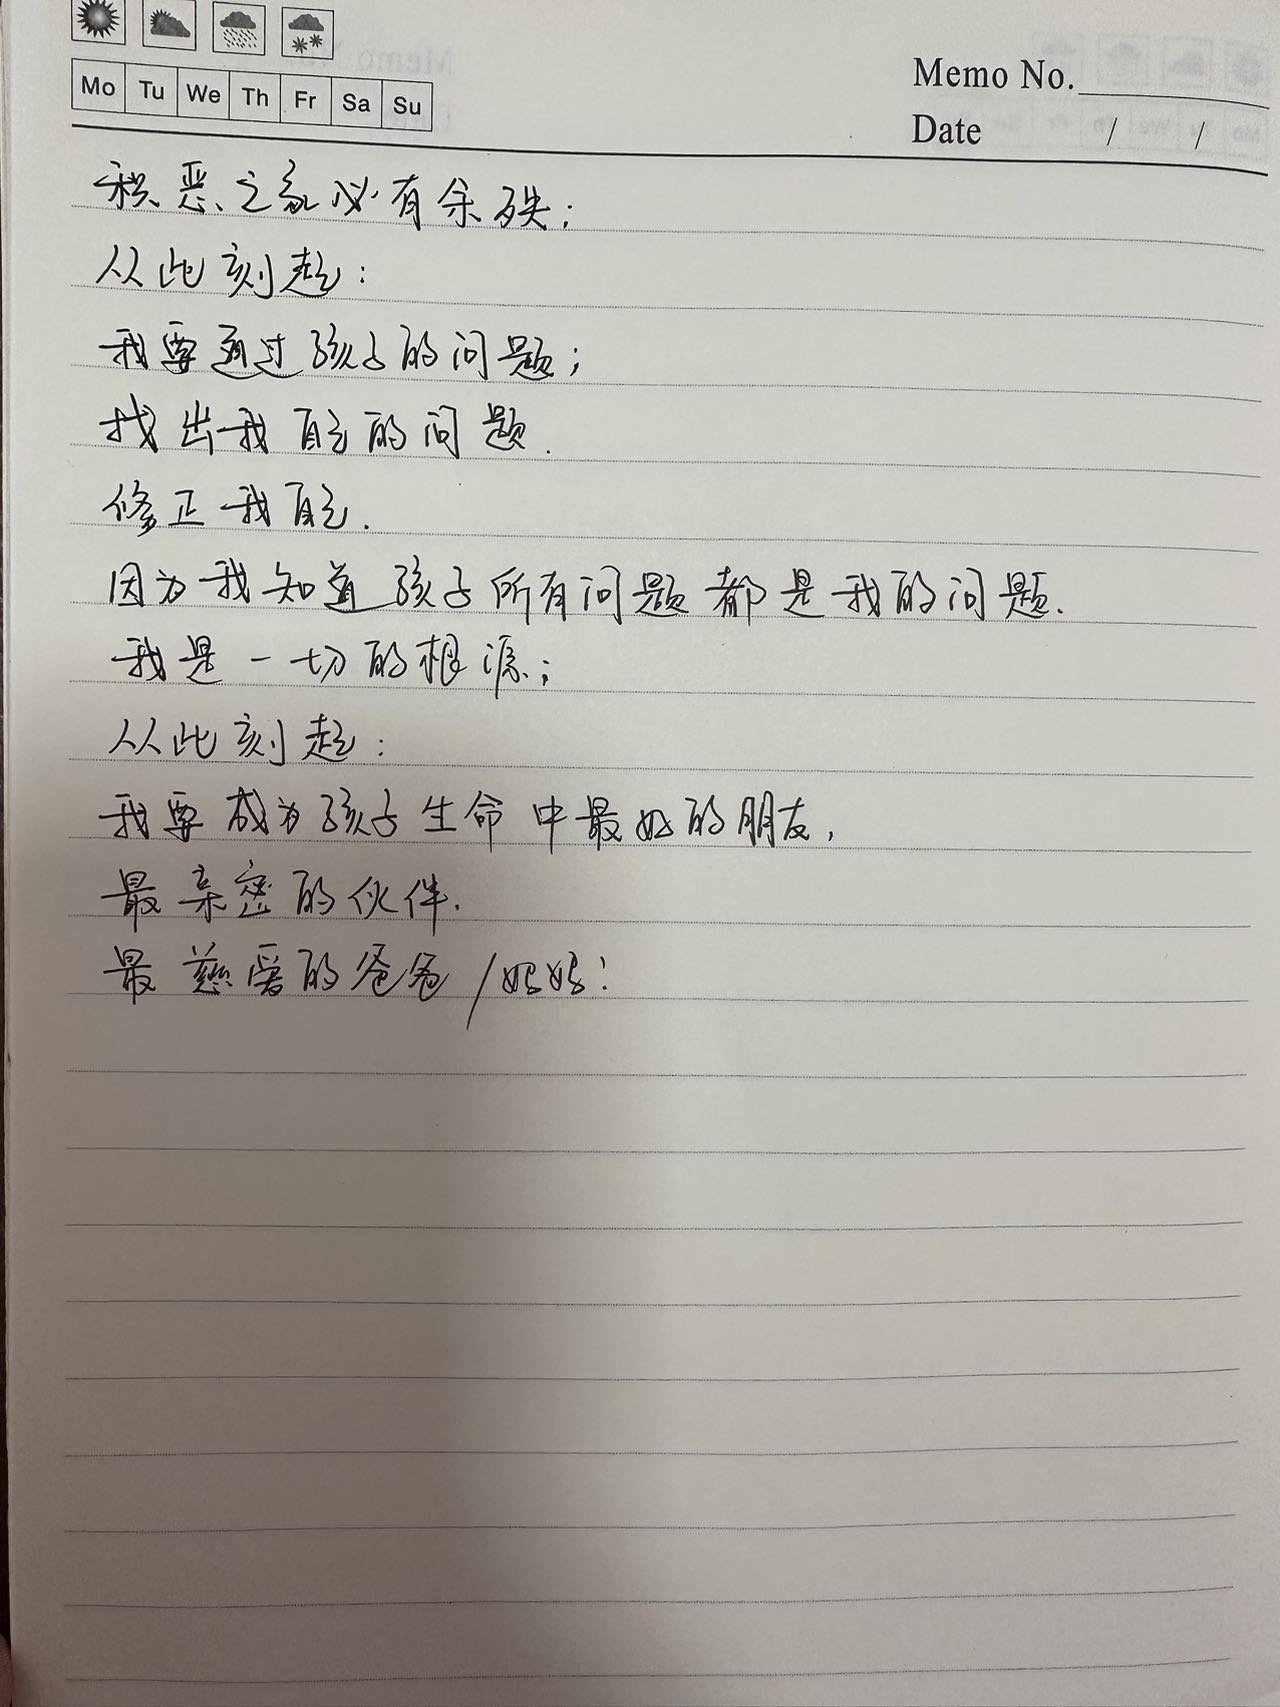 Mo Tu We Th Fr Sa Su
Memo No.
Date / /
积恶之家必有余殃;
从此刻起:
我要通过孩子的问题;
找出我自己的问题.
修正我自己.
因为我知道孩子所有问题都是我的问题.
我是一切的根源;
从此刻起:
我要成为孩子生命中最好的朋友,
最亲密的伙伴.
最慈爱的爸爸/妈妈!